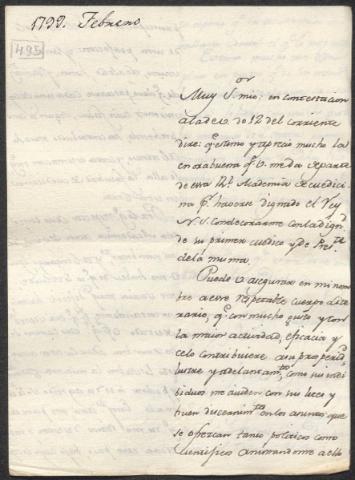 1799. Febrero
495
Muy S.or mio: en contextacion
a la de v. de 12 del corriente
dire: q.e estimo y aprecio mucho la
enorabuena q.e v. me da de parte
de essa R.l Academia de medici-
na p.r haverse dignado el Rey
N. S. condecorarme con la dign.d
de su primer medico y de Pres.te
de la misma.
Puede v. asegurar en mi nom-
bre a esse respetable cuerpo lite-
rario, q.e con mucho gusto y con
la maior actividad, eficacia y
celo contribuire a su properid.d
lustre y adelantam.to, como sus indi-
biduos me aiuden con sus luces y
buen deceam.to en los asuntos que
se ofrezcan tanto politicos como
cientificos animandome a ello